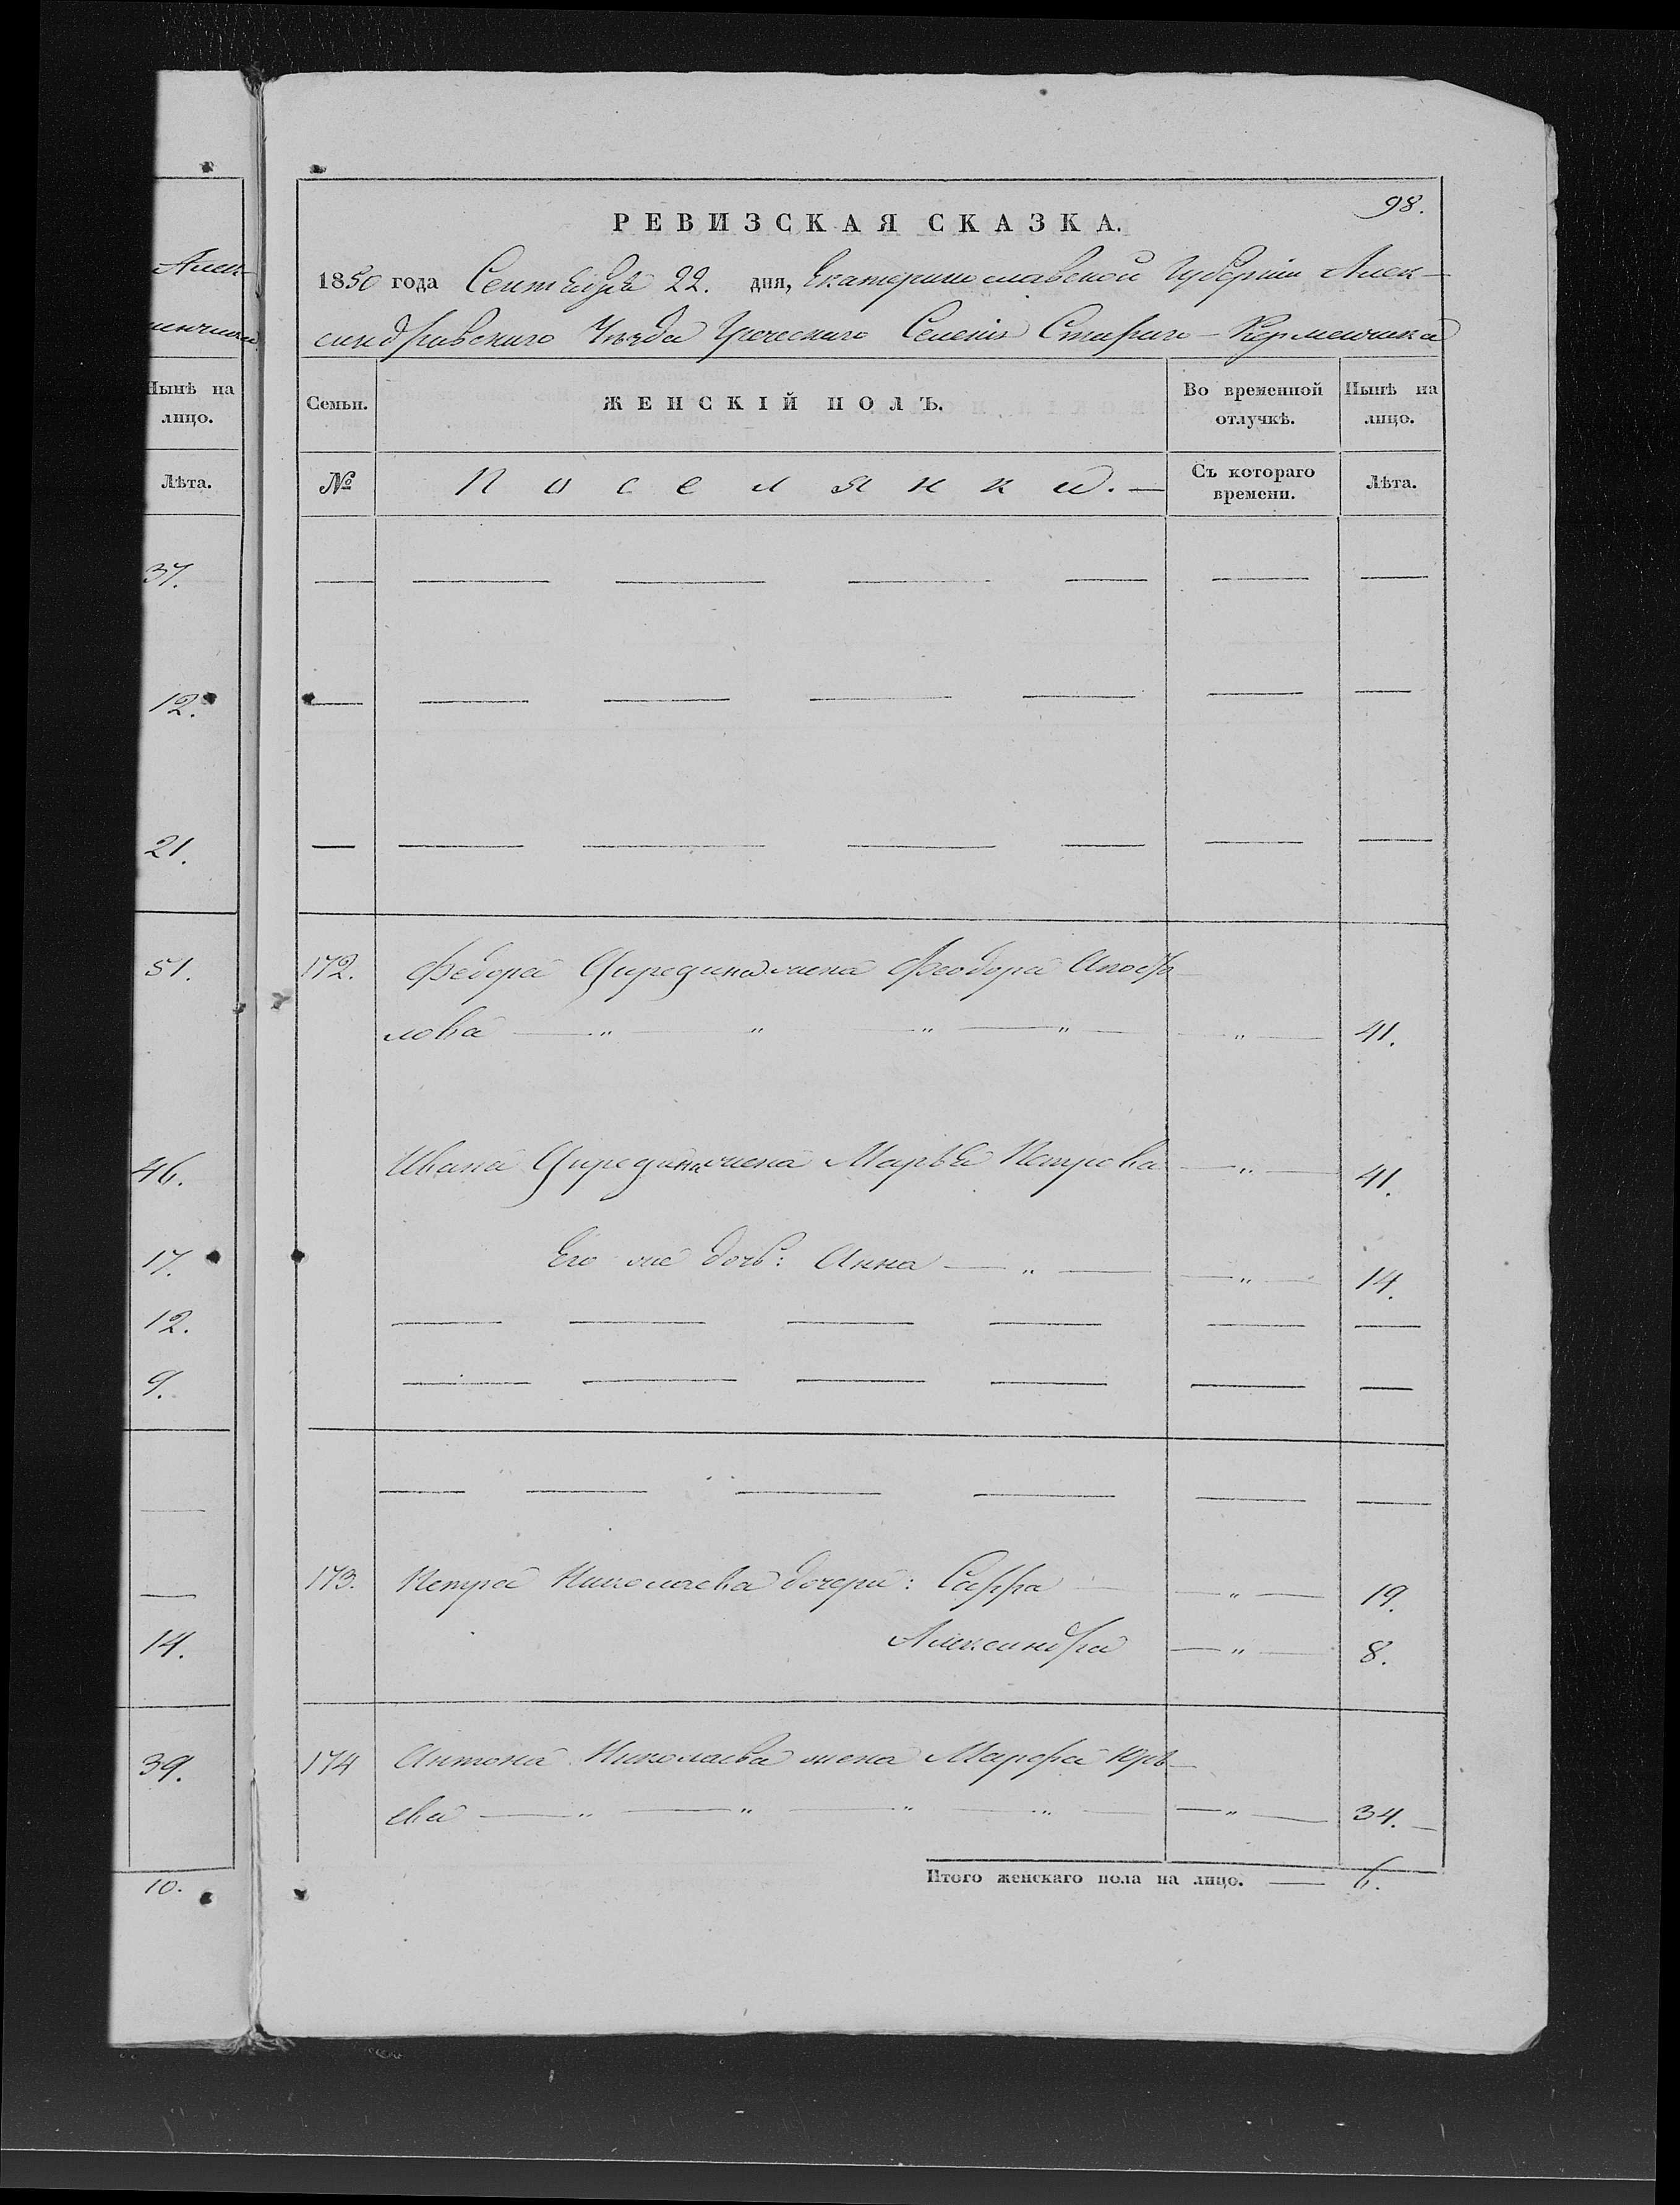 Алек-
менчика
Нынѣ на
лицо.
Лѣта.
37.
12.
21.
51.
46.
17.
12.
9.
14.
39.
10.
98.
РЕВИЗСКАЯ СКАЗКА.
1850 года Сентября 22. дня, Екатеринославской Губерніи Алек-
сандровскаго Уѣзда Греческаго Селенія Стараго-Керменчика
Семьи. ЖЕНСКІЙ ПОЛЪ. Во временной отлучкѣ. Нынѣ на лицо.
№ Поселянки.— Съ котораго времени. Лѣта.
172. Федора жена Феодора Апост-
лова — " — " — " — " — — " — 41.
Ивана жена Марья Петрова — " — 41.
Его же дочь: Анна — " — — " — 14.
173. Петра Николаева дочери: Сарра — — " — 19.
Александра — " — 8.
174 Антона Николаева жена Марфа Юрь-
ева — " — " — " — " — — " — 34.—
Итого женскаго пола на лицо. — 6.